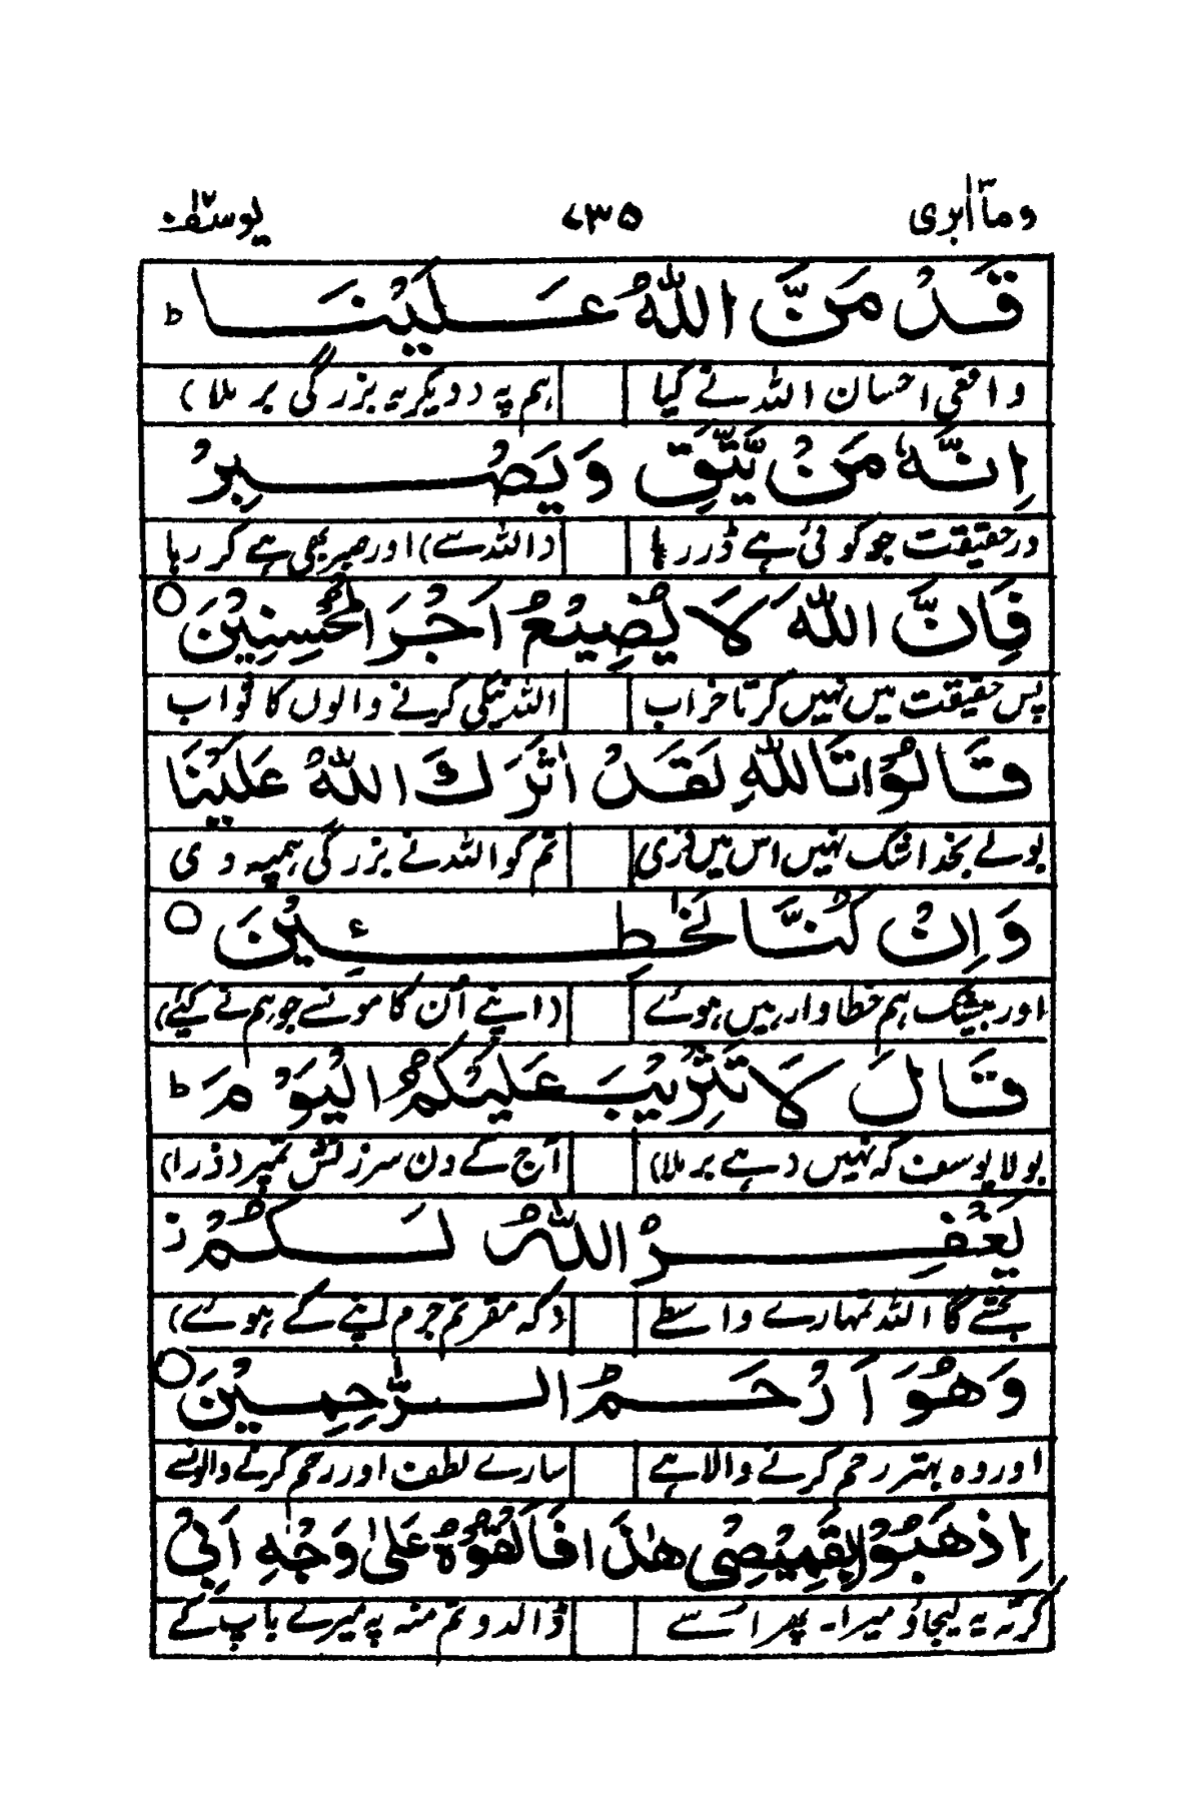 وما ابری ۱۳ ۷۳۵ یوسف ۱۲
قَدْ مَنَّ اللّٰهُ عَلَيْنَا ط
واقعی احسان اللہ نے کیا ہم پہ (دیکر یہ بزرگی بر ملا)
اِنَّهٗ مَنْ يَّتَّقِ وَيَصْبِرْ
درحقیقت جو کوئی ہے ڈر رہا (اللہ سے) اور صبر بھی ہے کر رہا
فَاِنَّ اللّٰهَ لَا يُضِيْعُ اَجْرَ الْمُحْسِنِيْنَ ○
پس حقیقت میں نہیں کرتا خراب اللہ نیکی کرنے والوں کا ثواب
قَالُوْا تَاللّٰهِ لَقَدْ اٰثَرَكَ اللّٰهُ عَلَيْنَا
بولے بخدا شک نہیں اس میں ذری تم کو اللہ نے بزرگی ہمپہ دی
وَاِنْ كُنَّا لَخٰطِـِٕيْنَ ○
اور بیشک ہم خطاوار ہیں ہوئے (اپنے اُن کاموں سے جو ہم نے کیئے)
قَالَ لَا تَثْرِيْبَ عَلَيْكُمُ الْيَوْمَ ط
بولا یوسف کہ نہیں (ہے بر ملا) آج کے دن سرزنش تمپر (ذرا)
يَغْفِرُ اللّٰهُ لَكُمْ ز
بخشے گا اللہ تمہارے واسطے (کہ مقر تم جرم اپنے کے ہوئے)
وَهُوَ اَرْحَمُ الرّٰحِمِيْنَ ○
اور وہ بہتر رحم کرنے والا ہے سارے لطف اور رحم کرنے والوں سے
اِذْهَبُوْا بِقَمِيْصِيْ هٰذَا فَاَلْقُوْهُ عَلٰى وَجْهِ اَبِيْ
کرتہ یہ لیجاؤ میرا۔ پھر اسے ڈالدو تم منہ پہ میرے باپ کے